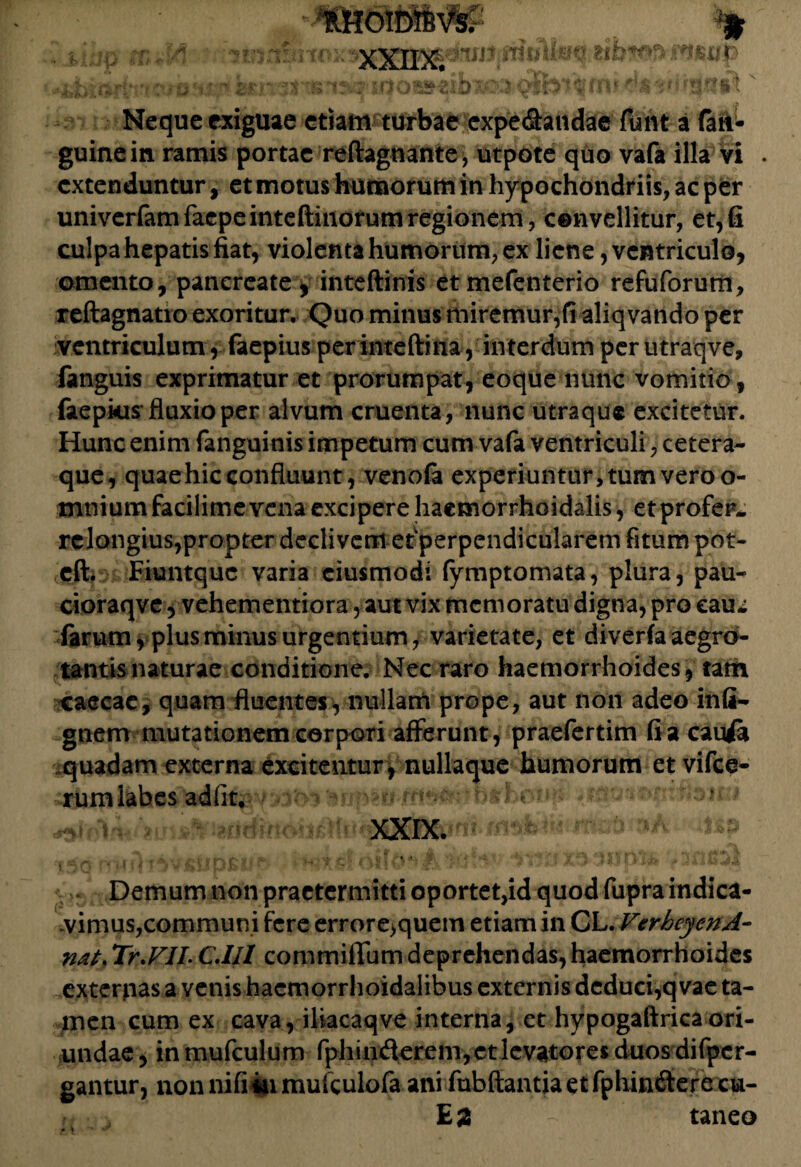 RHOIDIBVS.
XXIIX.
Neque exiguae etiam turbae expectandae sunt a san-
guine in ramis portae restagnante, utpote quo vasa illa vi
extenduntur, et motus humorum in hypochondriis, ac per
universam saepe intestinorum regionem, convellitur, et, si
culpa hepatis fiat, violenta humorum, ex liene, ventriculo,
omento, pancreate, intestinis et mesenterio refusorum,
restagnatio exoritur. Quo minus miremur, si aliqvando per
ventriculum, saepius per intestina, interdum per utraqve,
sanguis exprimatur et prorumpat, eoque nunc vomitio,
saepius fluxio per alvum cruenta, nunc utraque excitetur.
Hunc enim sanguinis impetum cum vasa ventriculi, cetera-
que, quae hic confluunt, venosa experiuntur, tum vero o-
mnium facilime vena excipere haemorrhoidalis, et profer-
re longius, propter declivem et perpendicularem situm pot-
est. Fiuntque varia eiusmodi symptomata, plura, pau-
cioraqve, vehementiora, aut vix memoratu digna, pro cau-
sarum, plus minus urgentium, varietate, et diversa aegro-
tantis naturae conditione. Nec raro haemorrhoides, tam
caecae, quam fluentes, nullam prope, aut non adeo insi-
gnem mutationem corpori afferunt, praesertim si a causa
quadam externa excitentur, nullaque humorum et visce-
rum labes adsit.
XXIX.
Demum non praetermitti oportet, id quod supra indica-
vimus, communi fere errore, quem etiam in CL. Verheyen A-
nat. Tr. VII. C. III commissum deprehendas, haemorrhoides
externas a venis haemorrhoidalibus externis deduci, qvae ta-
men cum ex cava, iliacaqve interna, et hypogastrica ori-
undae, in musculum sphincterem, et levatores duos disper-
gantur, non nisi in musculosa ani substantia et sphinctere cu-
E 2 taneo